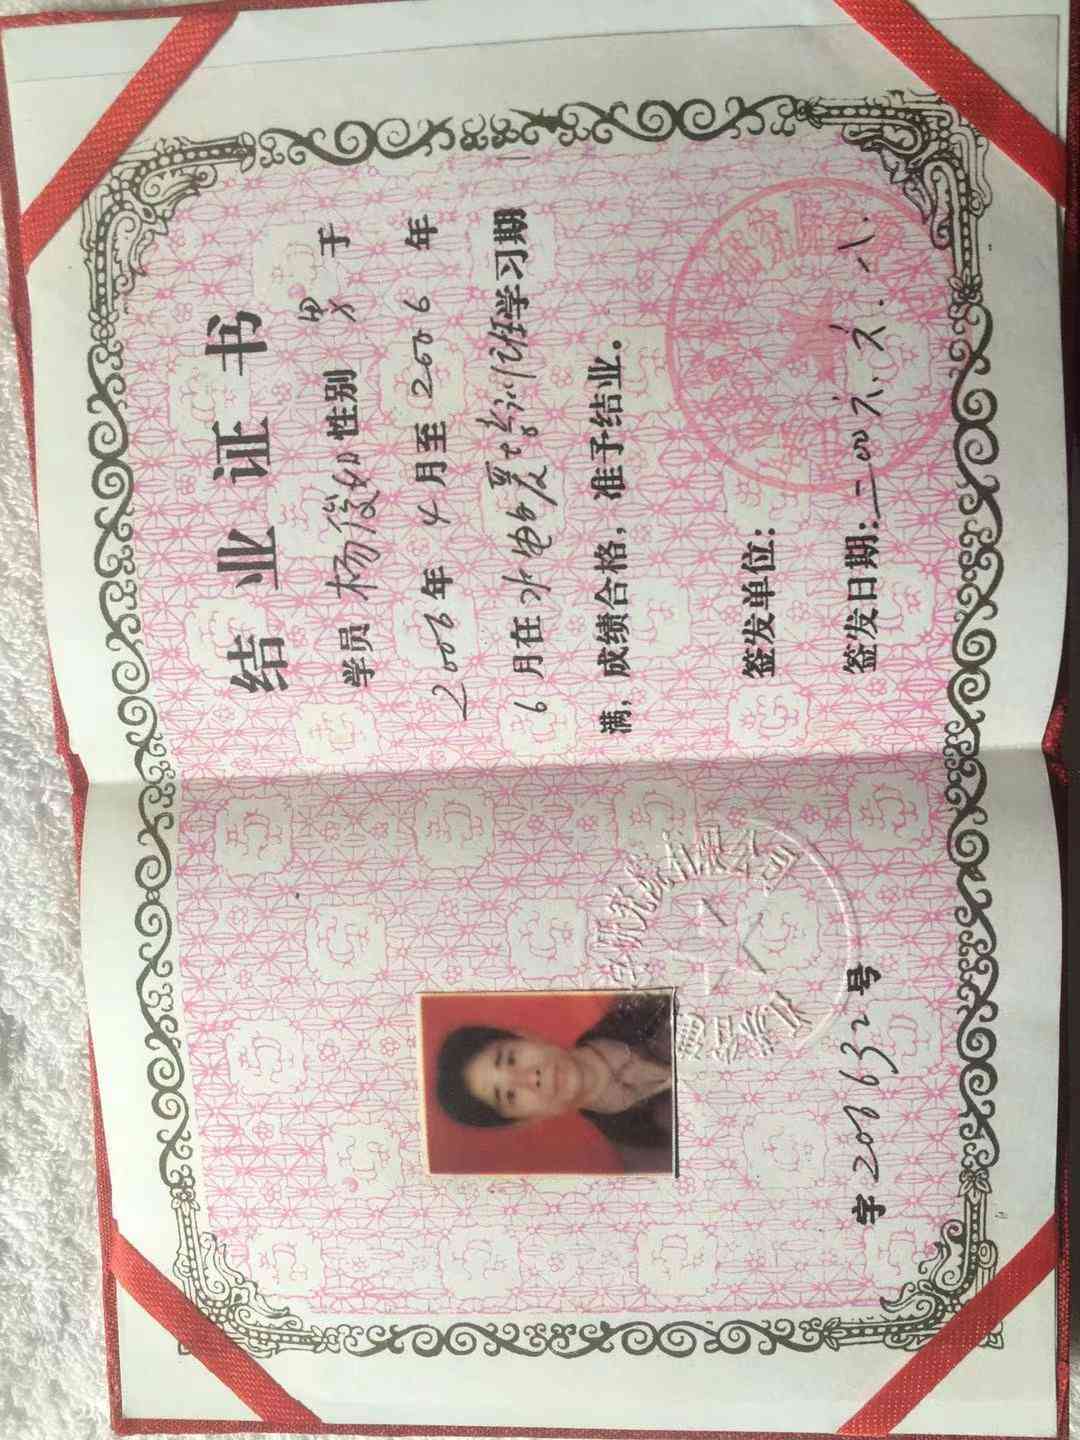 结业证书
学员 杨俊如 性别 男 于
2006年4月至2006年
6月在水电暖培训班学习期
满，成绩合格，准予结业。
签发单位：
签发日期：二00六.六.八.
研究院有限公司
字 200632 号